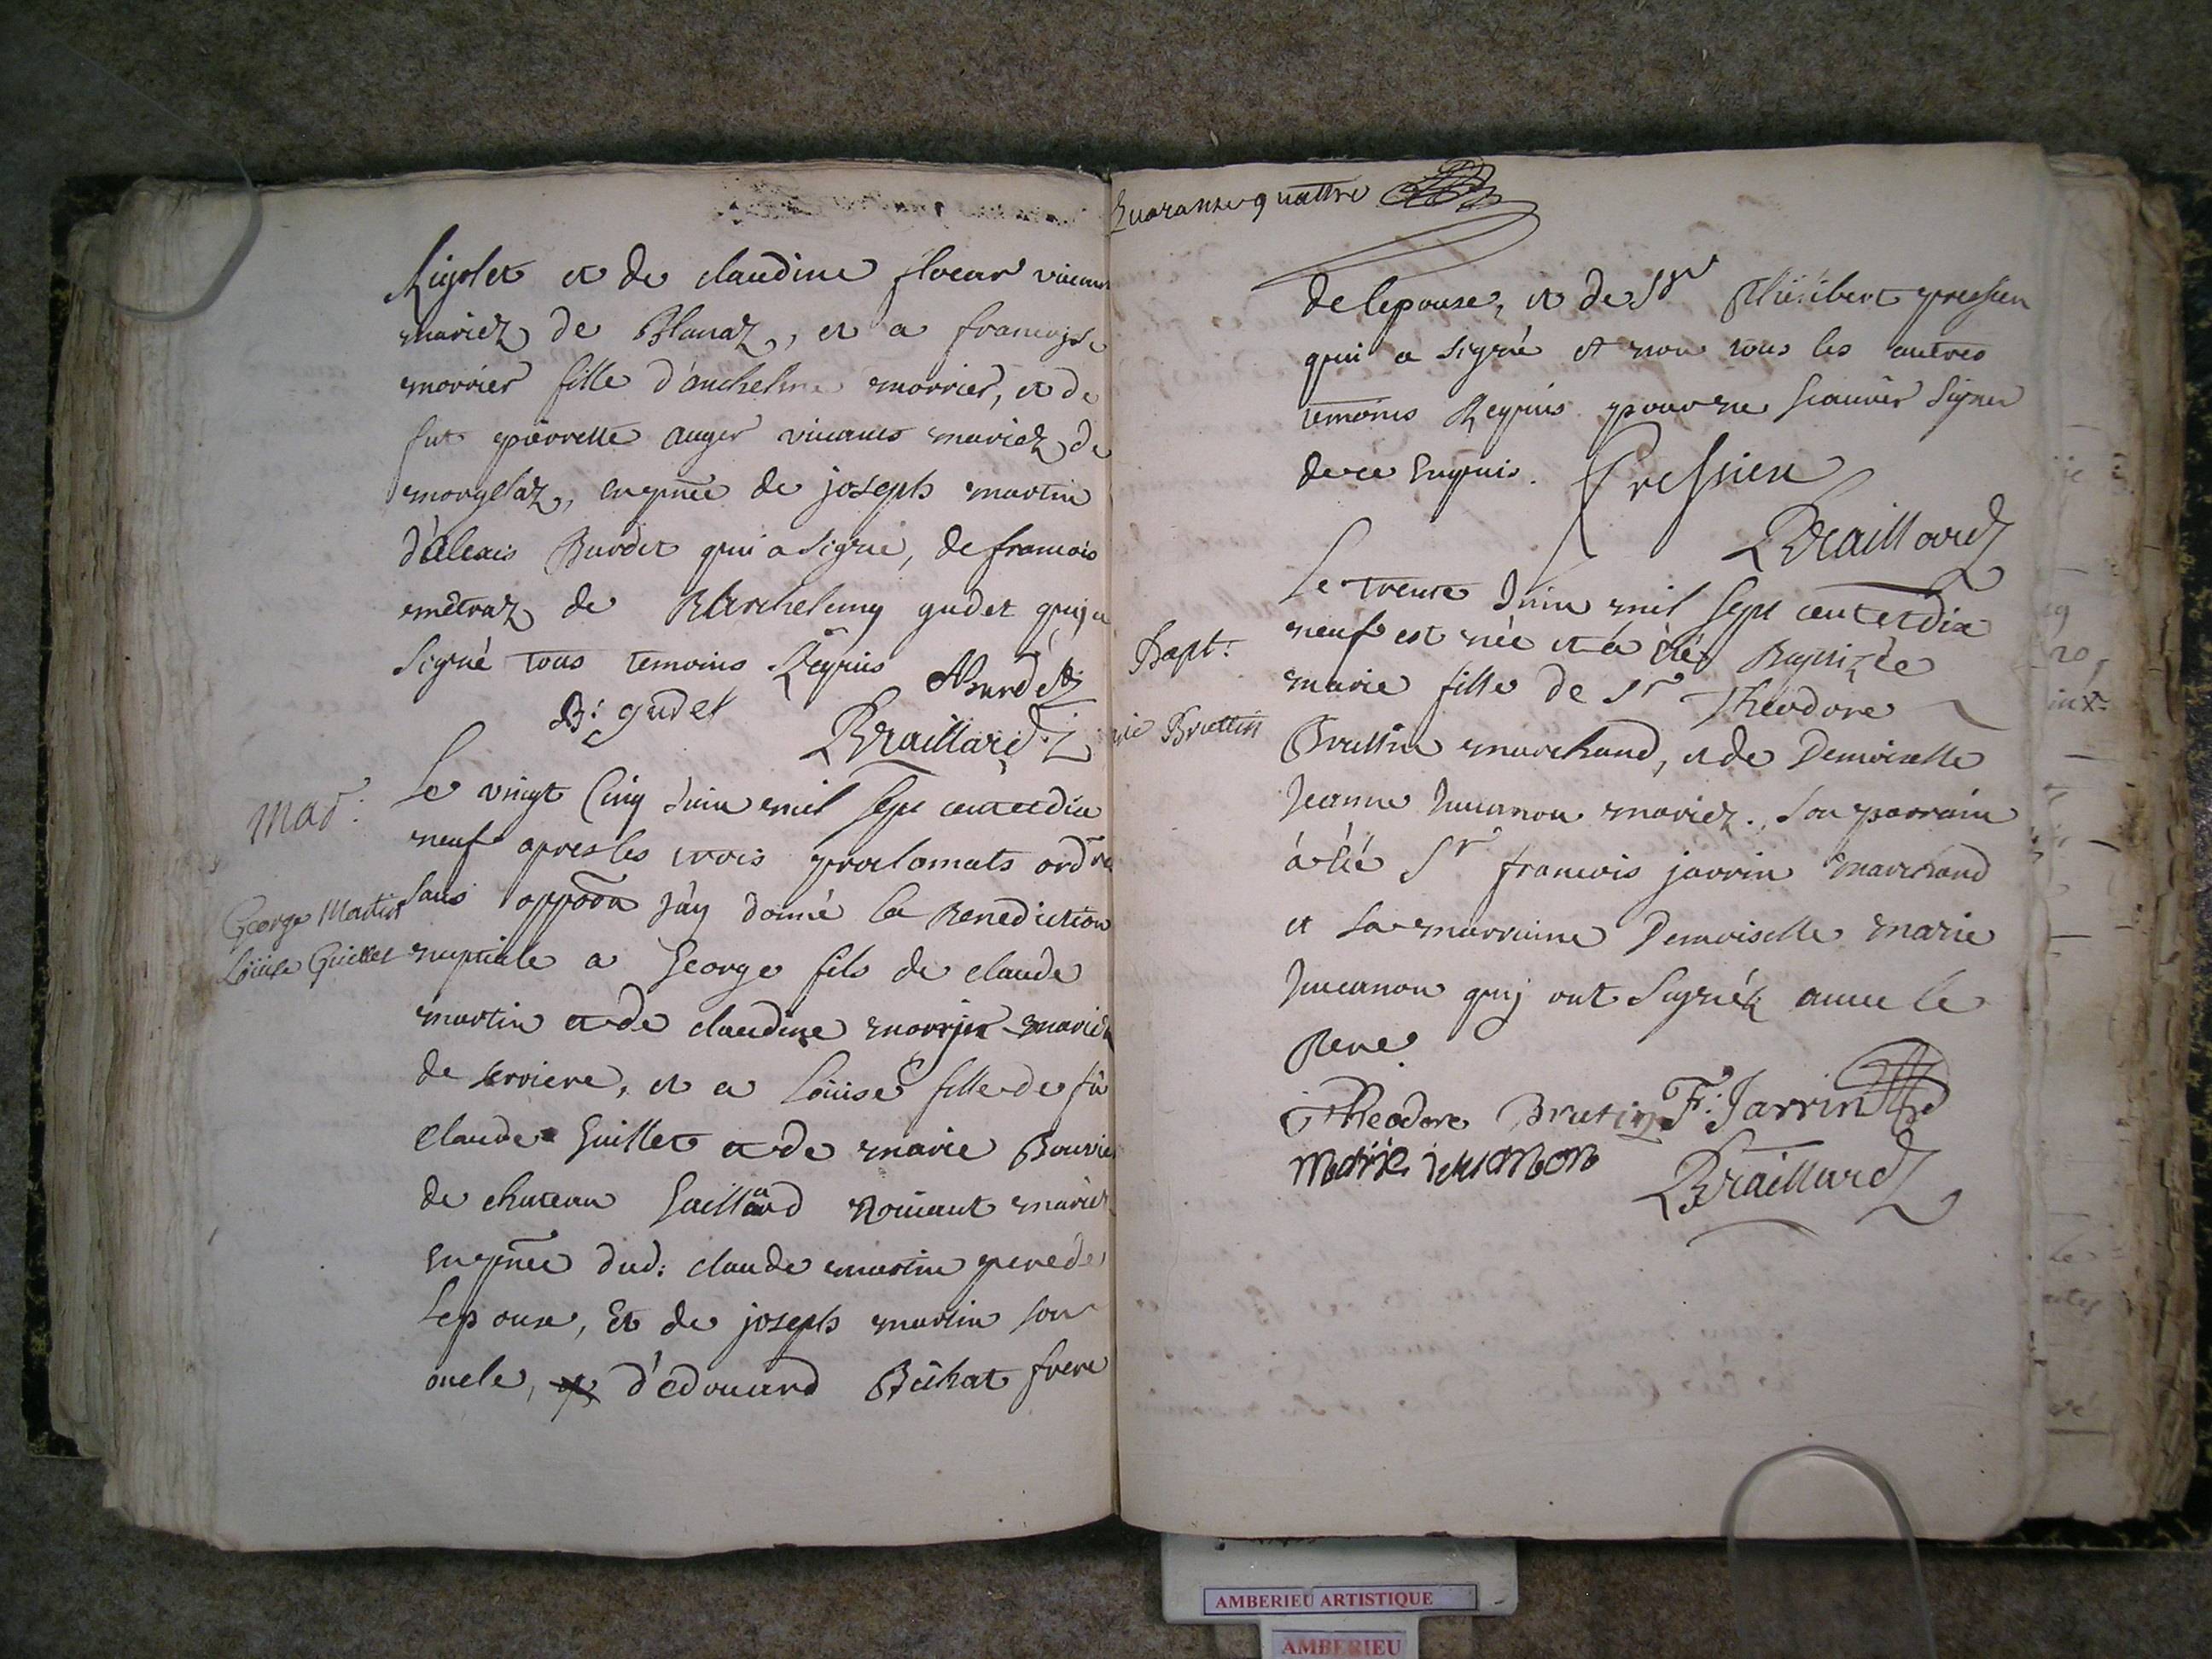 Rigolet et de claudine flocar vivans
mariez de Blanaz, et a francoise
morrier fille d'anthelme morrier, et de
fut pierrette auger vivants mariez de
morgelaz, en pnce de joseph martin
d'alexis Burdet qui a signé, de francois
emêtraz de Barthelemy gudet quj a
signé tous temoins Requis ABurdet
B: gudet Braillard
Mar:
George Martin
Loüise Guillet
Le vingt Cinq Juin mil sept centetdix
neuf apres les trois proclamats ordres
sans oppõon J'ay donné la Benediction
nuptiale a George fils de claude
martin et de claudine morrier mariez
de serriere, et a Loüise fille de fû
Claude Guillet et de marie Bouvier
de chateau Gaillard vivant mariez
En pnce dud: claude martin pere de
Lepoux, Et de joseph martin son
oncle, d'édouard Bûhat frere
Quarante quattre
de lepouse, et de Sgr Philibert pressieu
qui a signé et non tous les autres
temoins Requis pour ne scauoir signer
de ce Enquis. Pressieu
Braillard
Bapt:
rie Bruttin
Le trente Juin mil sept centetdix
neuf est née et a été Baptizée
marie fille de Sr Theodore
Bruttin marchand, et de Demoiselle
Jeanne Juuanon mariez. Son parrain
a été Sr francois jarrin marchand
et sa marraine Demoiselle marie
Juuanon quj ont Signéz auec le
Pere
Theodore Brutin F: Jarrin
Marie iuuanon Braillard
AMBERIEU ARTISTIQUE
AMBERIEU